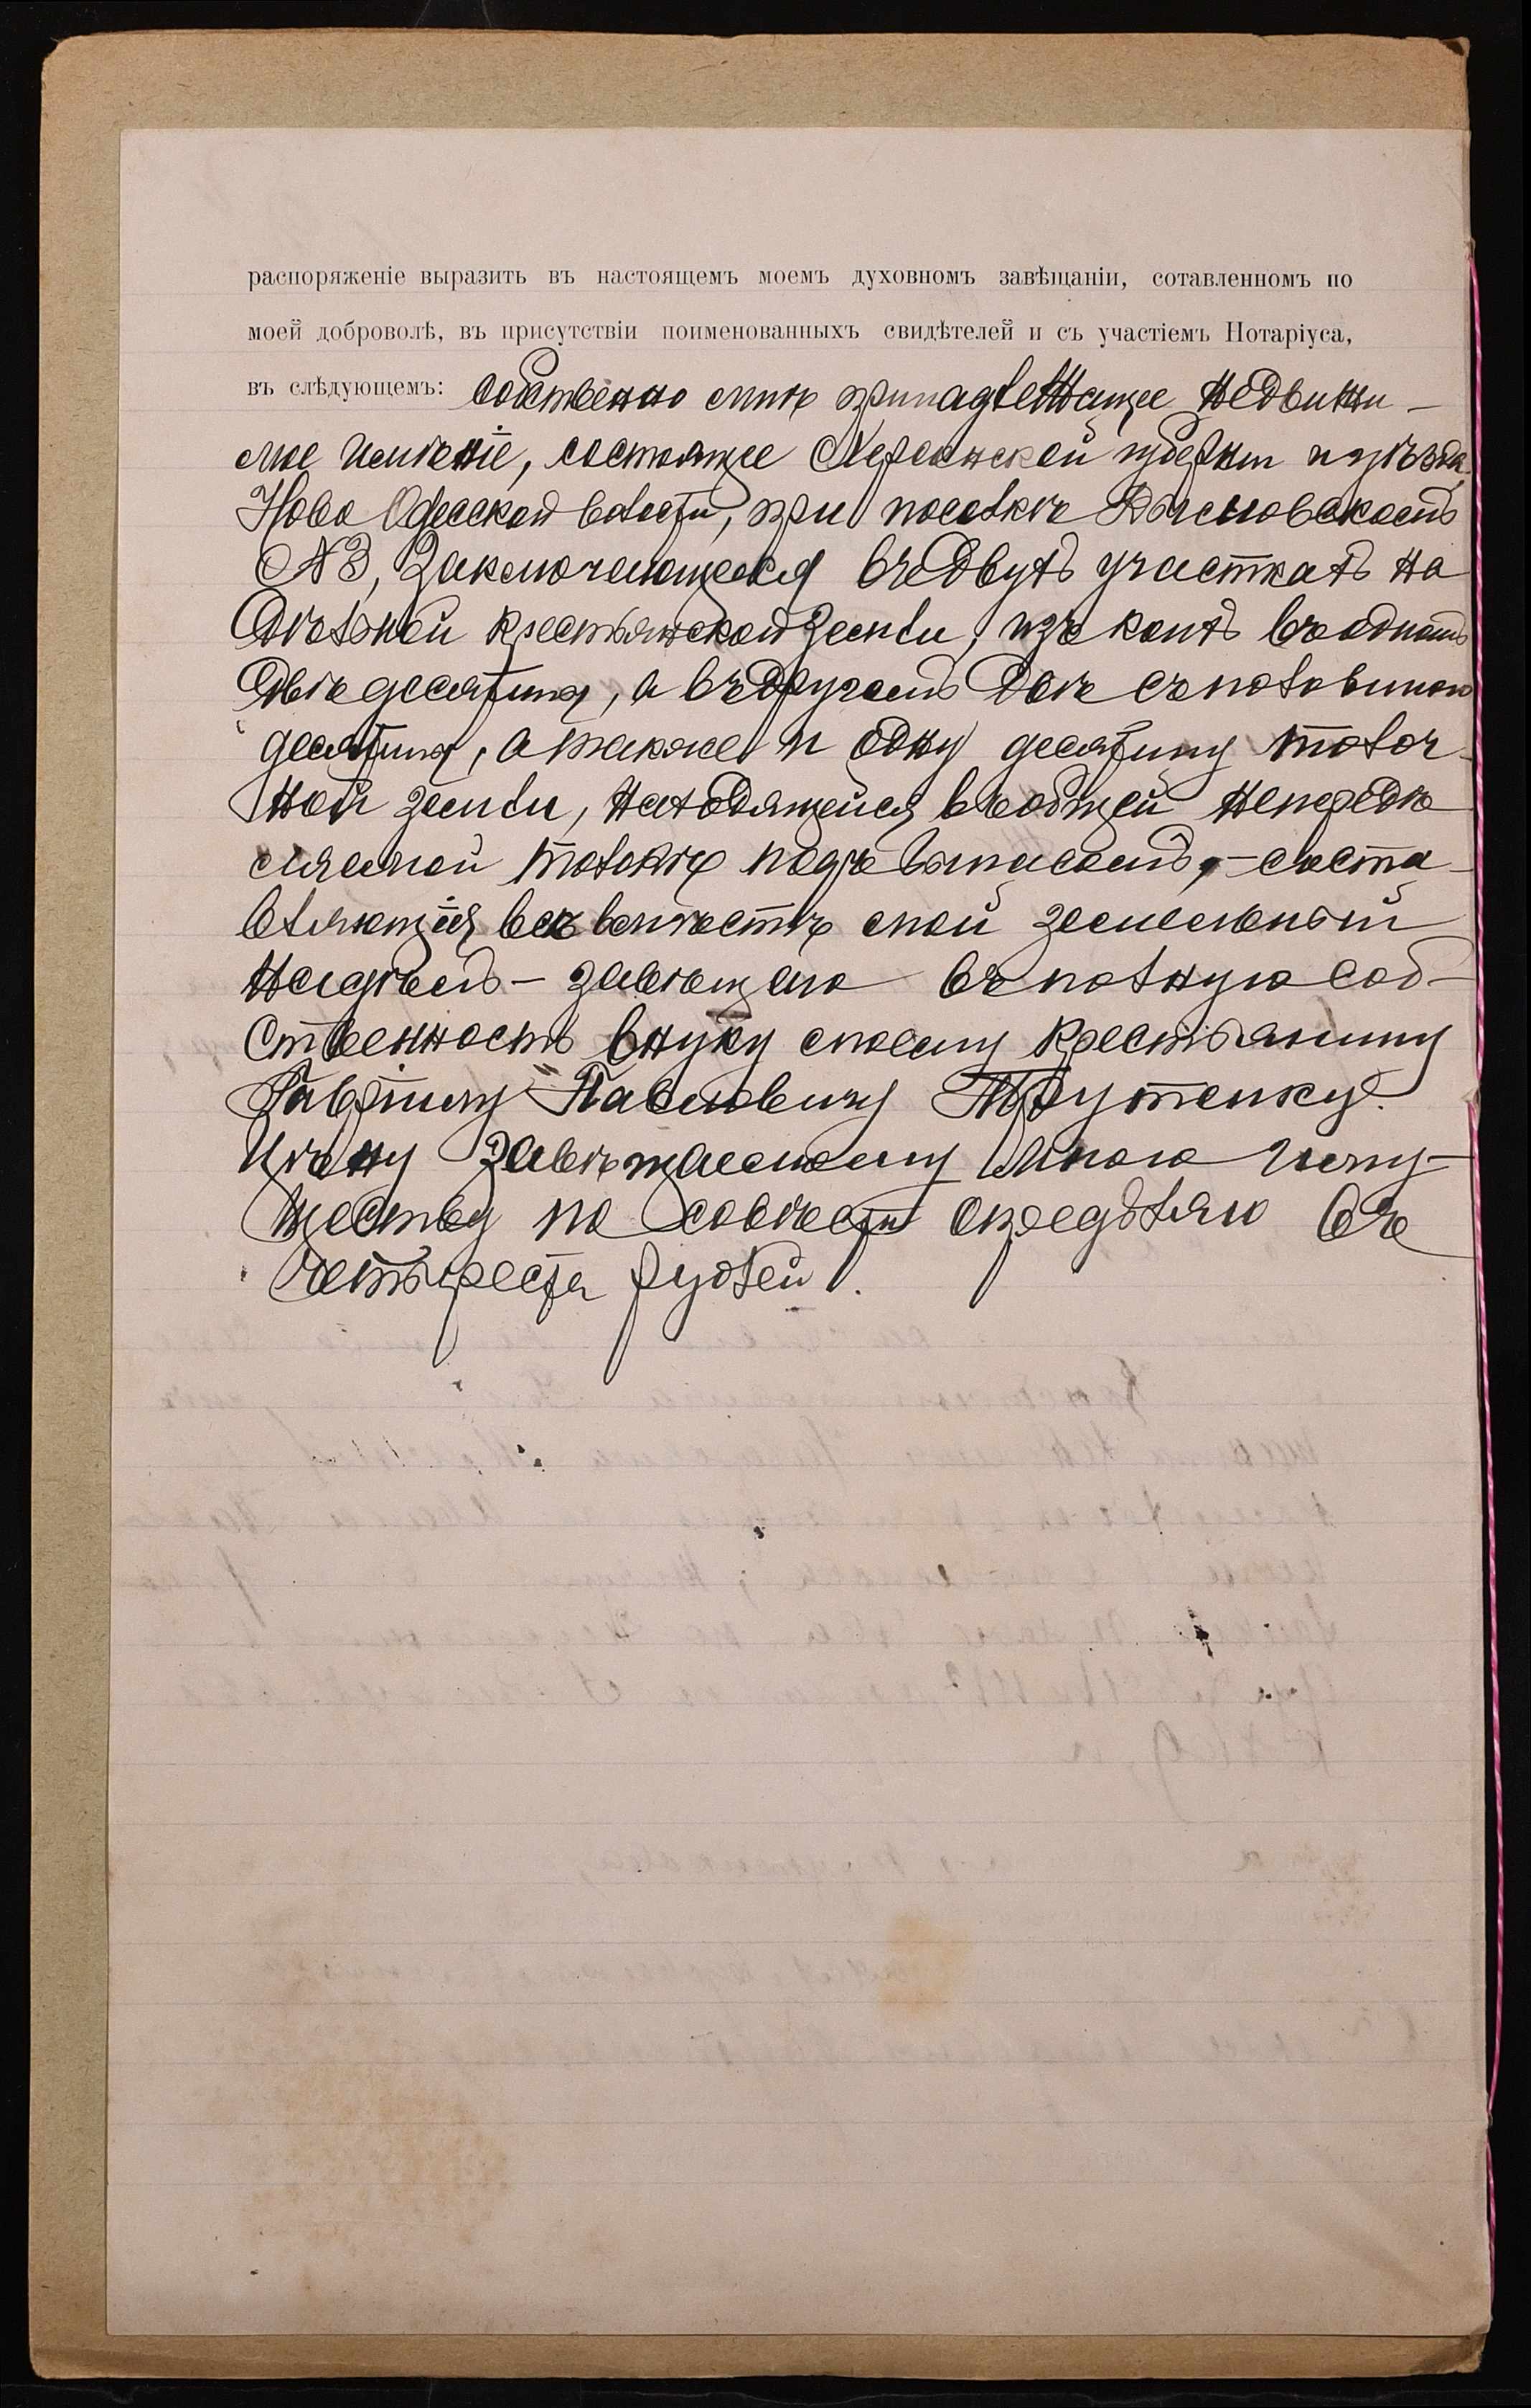 распоряженіе выразить въ настоящемъ моемъ духовномъ завѣщаніи, сотавленномъ по
моей доброволѣ, въ присутствіи поименованныхъ свидѣтелей и съ участіемъ Нотаріуса,
въ слѣдующемъ: собственно мнѣ принадлежащее недвижи-
мое имѣніе, состоящее Херсонской губерніи и уѣзда,
Ново Одесской волости, при поселкѣ Касперовскомъ
№3, заключающееся въ двухъ участкахъ на
дѣльной крестьянской земли, изъ коихъ въ одномъ
двѣ десятины, а въ другомъ двѣ съ половиною
десятины, а также и одну десятину толоч-
ной земли, находящейся въ общей нераздѣ
лимой толокѣ подъ выпасомъ, - соста-
вляющія всѣ вмѣстѣ мой земельный
надѣлъ - завѣщаю въ полную соб-
ственность внуку моему крестьянину
Гавріилу Павловичу Трутенку.
Цѣну завѣщаемому мною иму-
ществу по совѣсти опредѣляю въ
четыреста рублей.